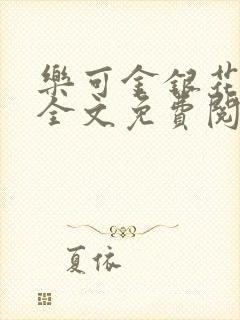 樂可金銀花
全文免費閱
夏依